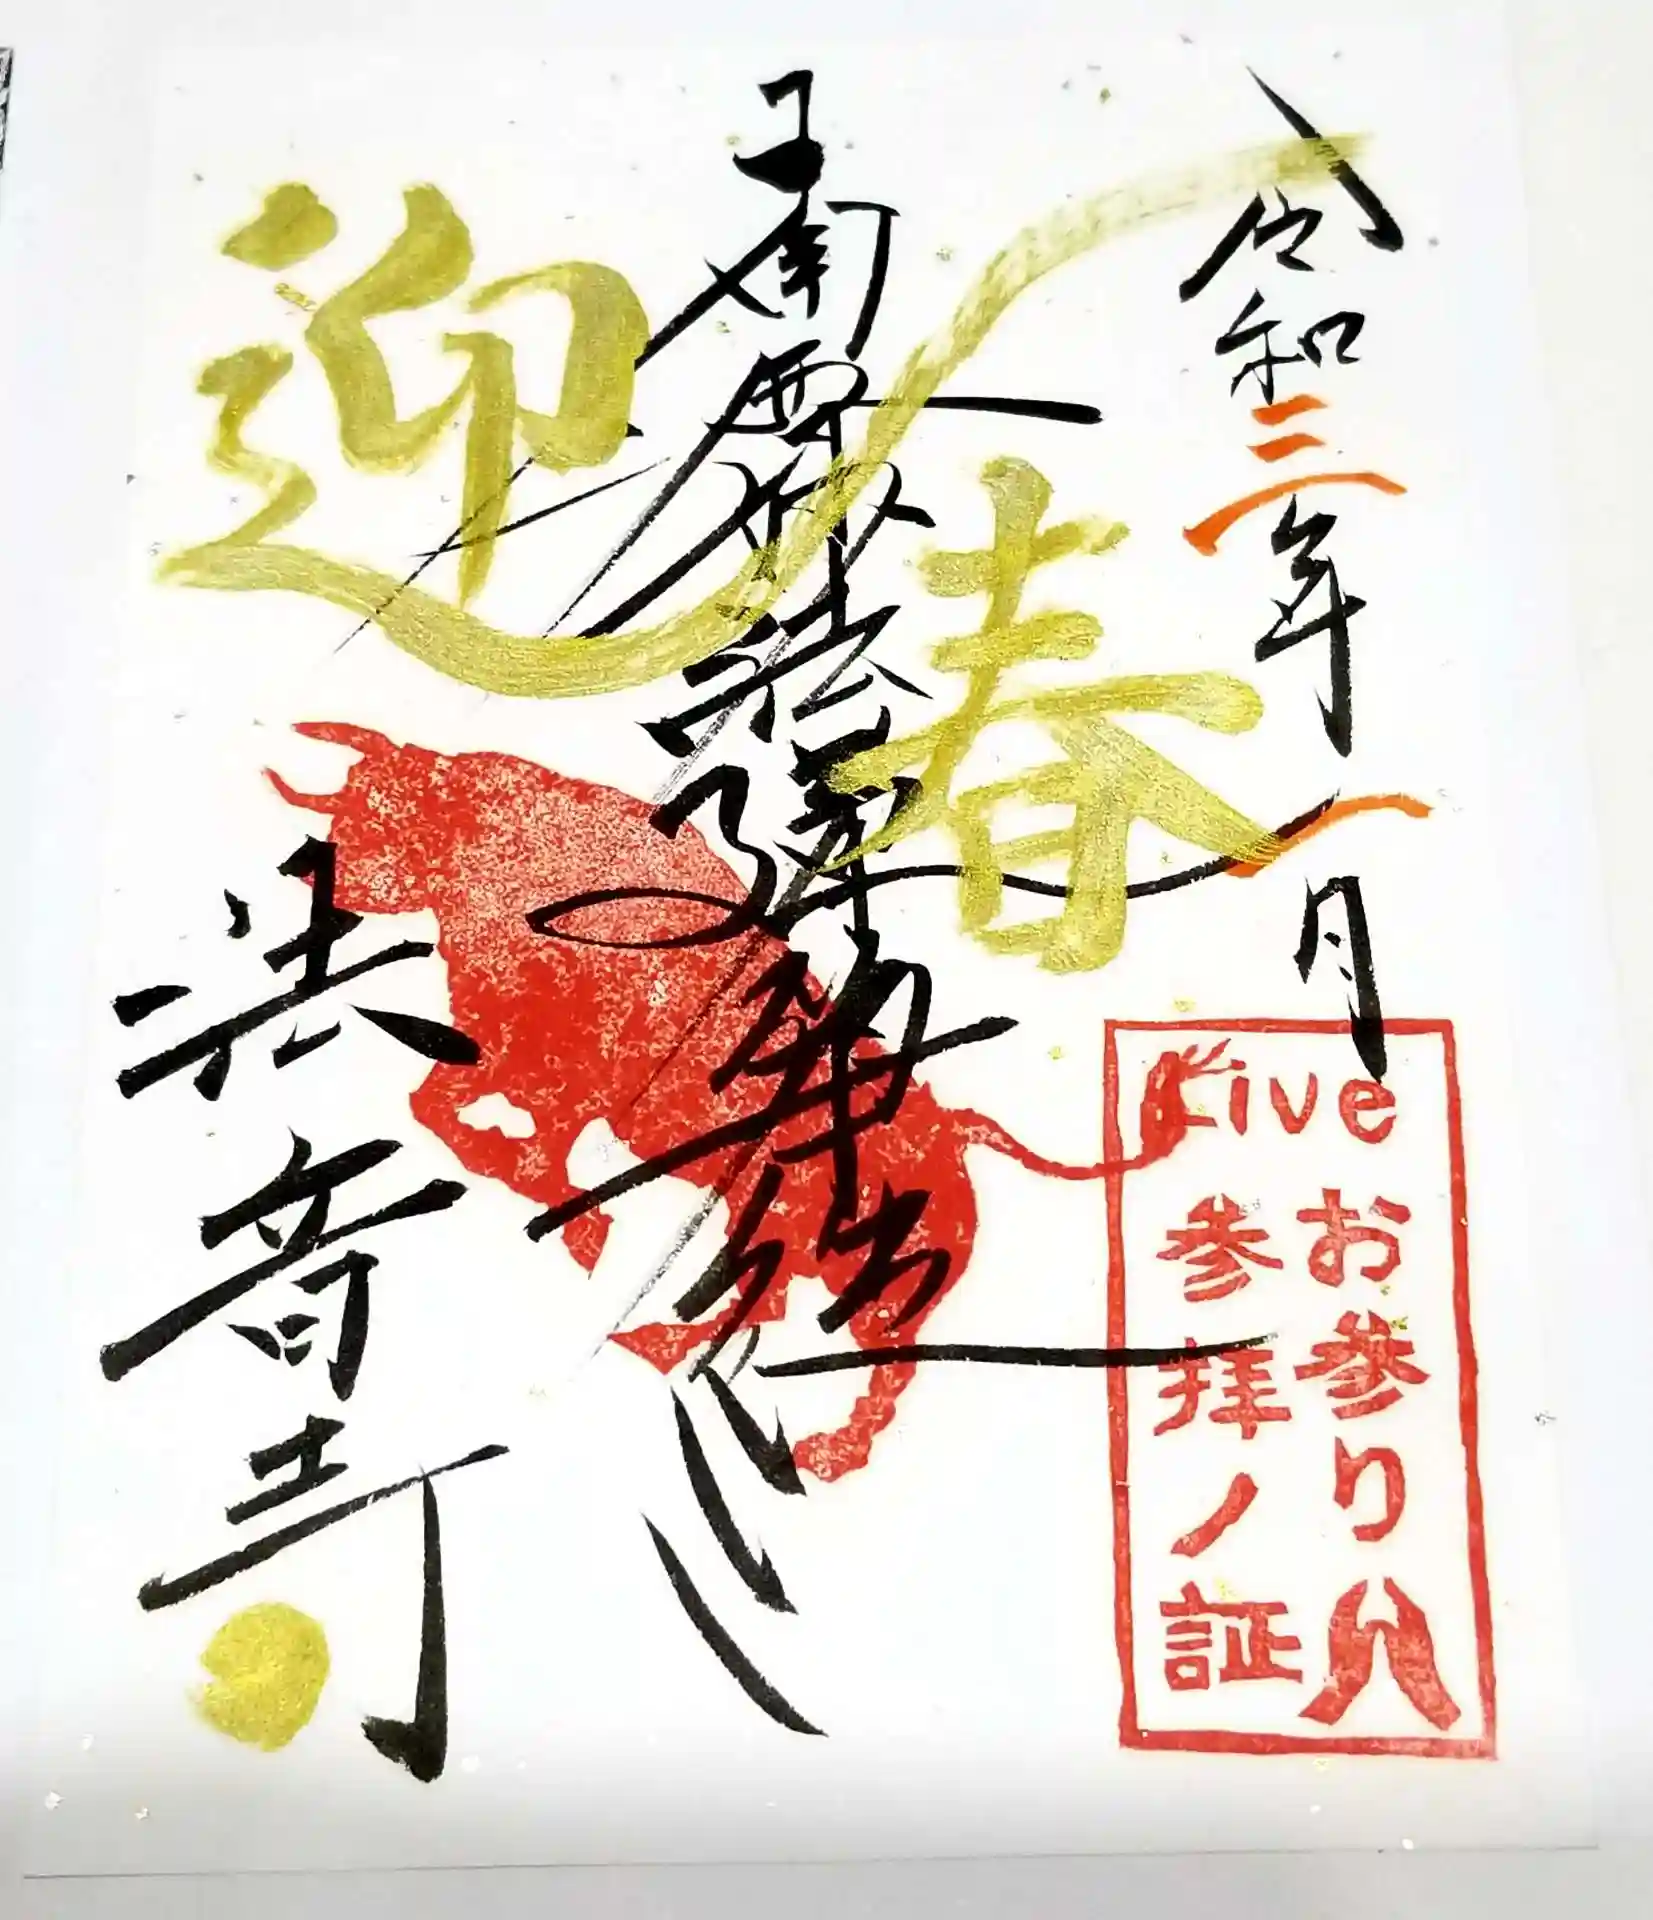 令和三年一月
Live
お参り
参拝ノ証
南無妙法蓮華経
迎春
法音寺